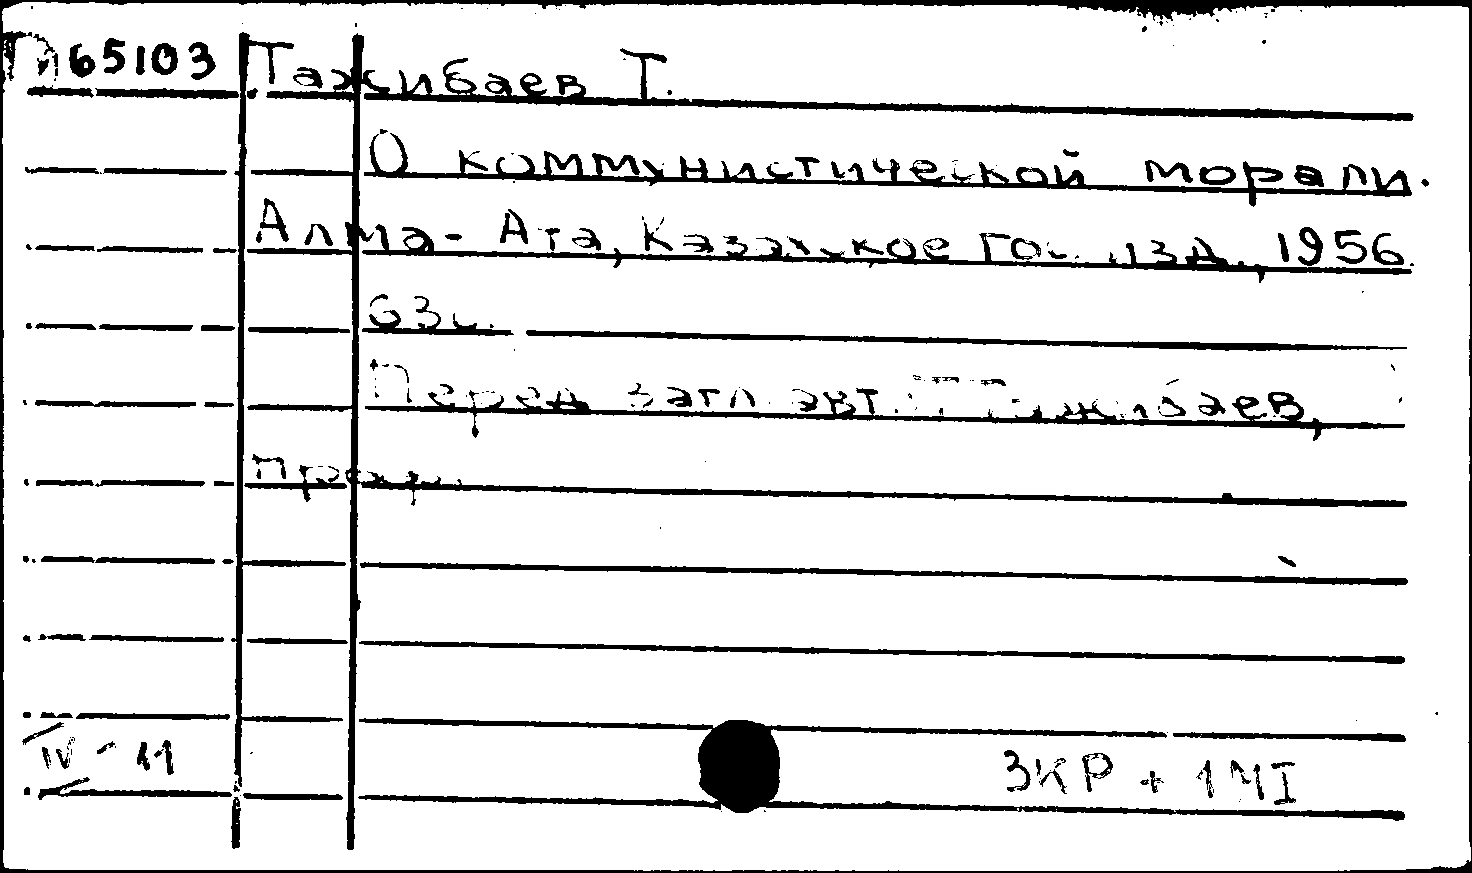 П65103 Тажибаев Т.
О коммунистической морали.
Алма-Ата, Казахское гос. изд., 1956.
63с.
Перед загл. авт.: Т. Тажибаев,
проф.
IV-11
3КР + 1ЧI